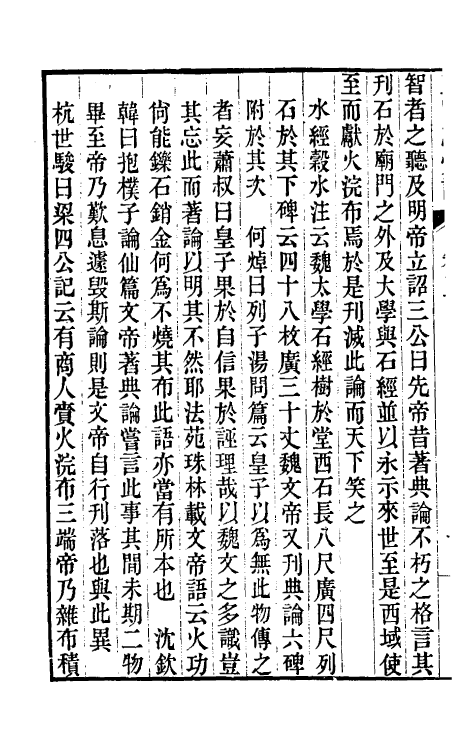 智者之聽及明帝立詔三公曰先帝昔著典論不朽之格言其
刊石於廟門之外及大學與石經並以永示來世至是西域使
至而獻火浣布焉於是刊滅此論而天下笑之
水經穀水注云魏太學石經樹於堂西石長八尺廣四尺列
石於其下碑云四十八枚廣三十丈魏文帝又刊典論六碑
附於其次　何焯曰列子湯問篇云皇子以爲無此物傳之
者妄蕭叔曰皇子果於自信果於誣理哉以魏文之多識豈
其忘此而著論以明其不然耶法苑珠林載文帝語云火功
尙能鑠石銷金何爲不燒其布此語亦當有所本也　沈欽
韓曰抱樸子論仙篇文帝著典論嘗言此事其間未期二物
畢至帝乃歎息遽毀斯論則是文帝自行刊落也與此異
杭世駿曰梁四公記云有商人賫火浣布三端帝乃雜布積